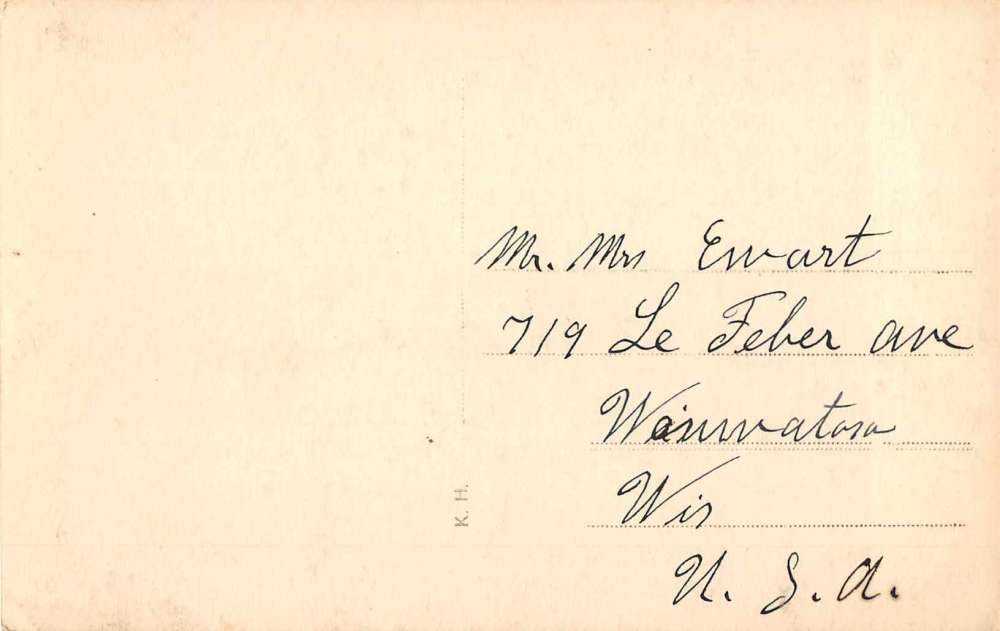 Mr. Mrs Ewart
719 Le Feber ave
Wauwatosa
Wis
U. S. A.
K. H.